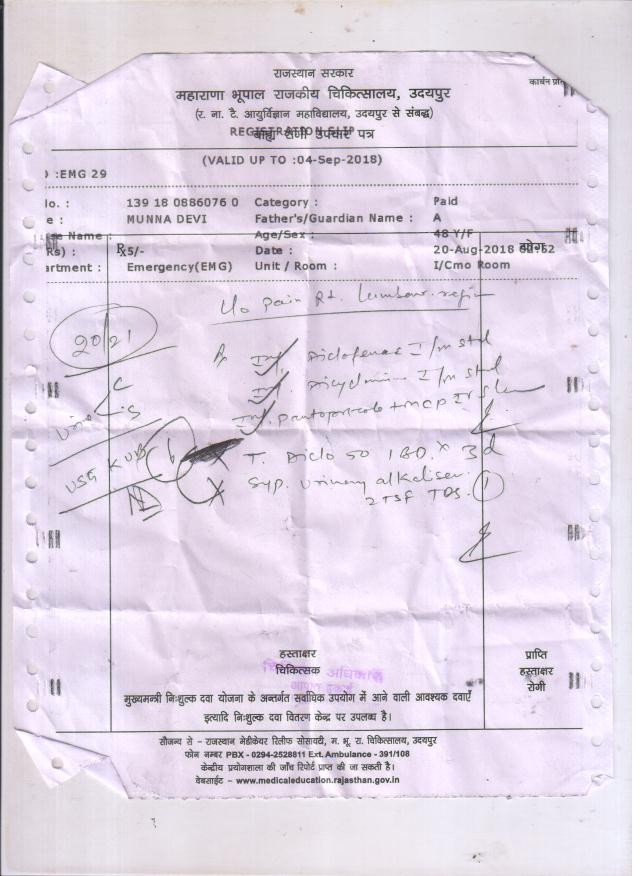 राजस्थान सरकार
कार्बन प्रति
महाराणा भूपाल राजकीय चिकित्सालय, उदयपुर
(र. ना. टै. आयुर्विज्ञान महाविद्यालय, उदयपुर से संबद्ध)
REGISTRATION SLIP
बाह्य रोगी उपचार पत्र
(VALID UP TO :04-Sep-2018)
:EMG 29
No. : 139 18 0886076 0 Category : Paid
e : MUNNA DEVI Father's/Guardian Name : A
se Name : Age/Sex : 48 Y/F
Rs) : 5/- Date : 20-Aug-2018
artment : Emergency(EMG) Unit / Room : I/Cmo Room
Rx
c/o pain Rt. Lumbar region
20/21
Rx Inj. Diclofenac I/m stat
Inj. Dicyclomine I/m stat
Urine C
S
Inj. pantoprazole + MCP
T. Diclo 50 1 BD x 3d
USG KUB
Syp. Urinary alkaliser
2 TSF TDS. 1
हस्ताक्षर
चिकित्सक
प्राप्ति
हस्ताक्षर
रोगी
मुख्यमन्त्री निःशुल्क दवा योजना के अन्तर्गत सर्वाधिक उपयोग में आने वाली आवश्यक दवाएँ
इत्यादि निःशुल्क दवा वितरण केन्द्र पर उपलब्ध है।
सौजन्य से - राजस्थान मेडीकेयर रिलीफ सोसायटी, म. भू. रा. चिकित्सालय, उदयपुर
फोन नम्बर PBX - 0294-2528811 Ext. Ambulance - 391/108
केन्द्रीय प्रयोगशाला की जाँच रिपोर्ट प्राप्त की जा सकती है।
वेबसाईट - www.medicaleducation.rajasthan.gov.in